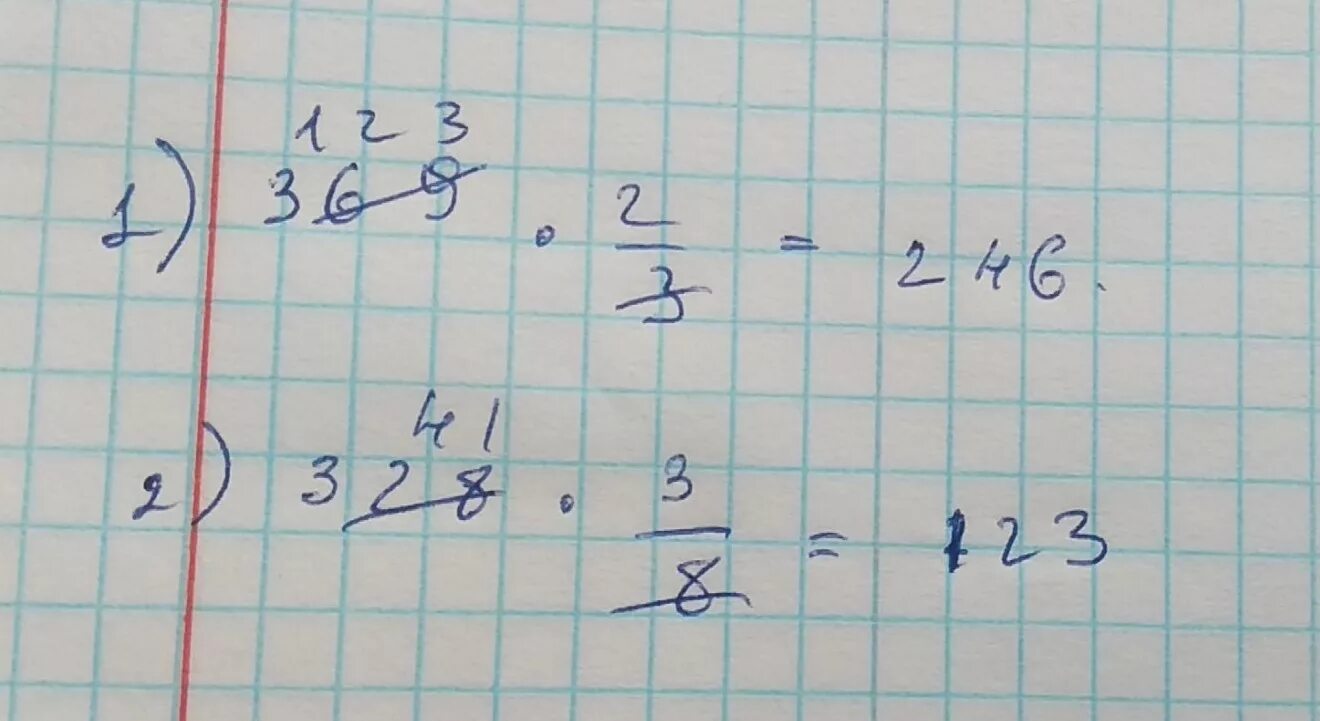 123
1) 369 · 2/3 = 246.
41
2) 328 · 3/8 = 123